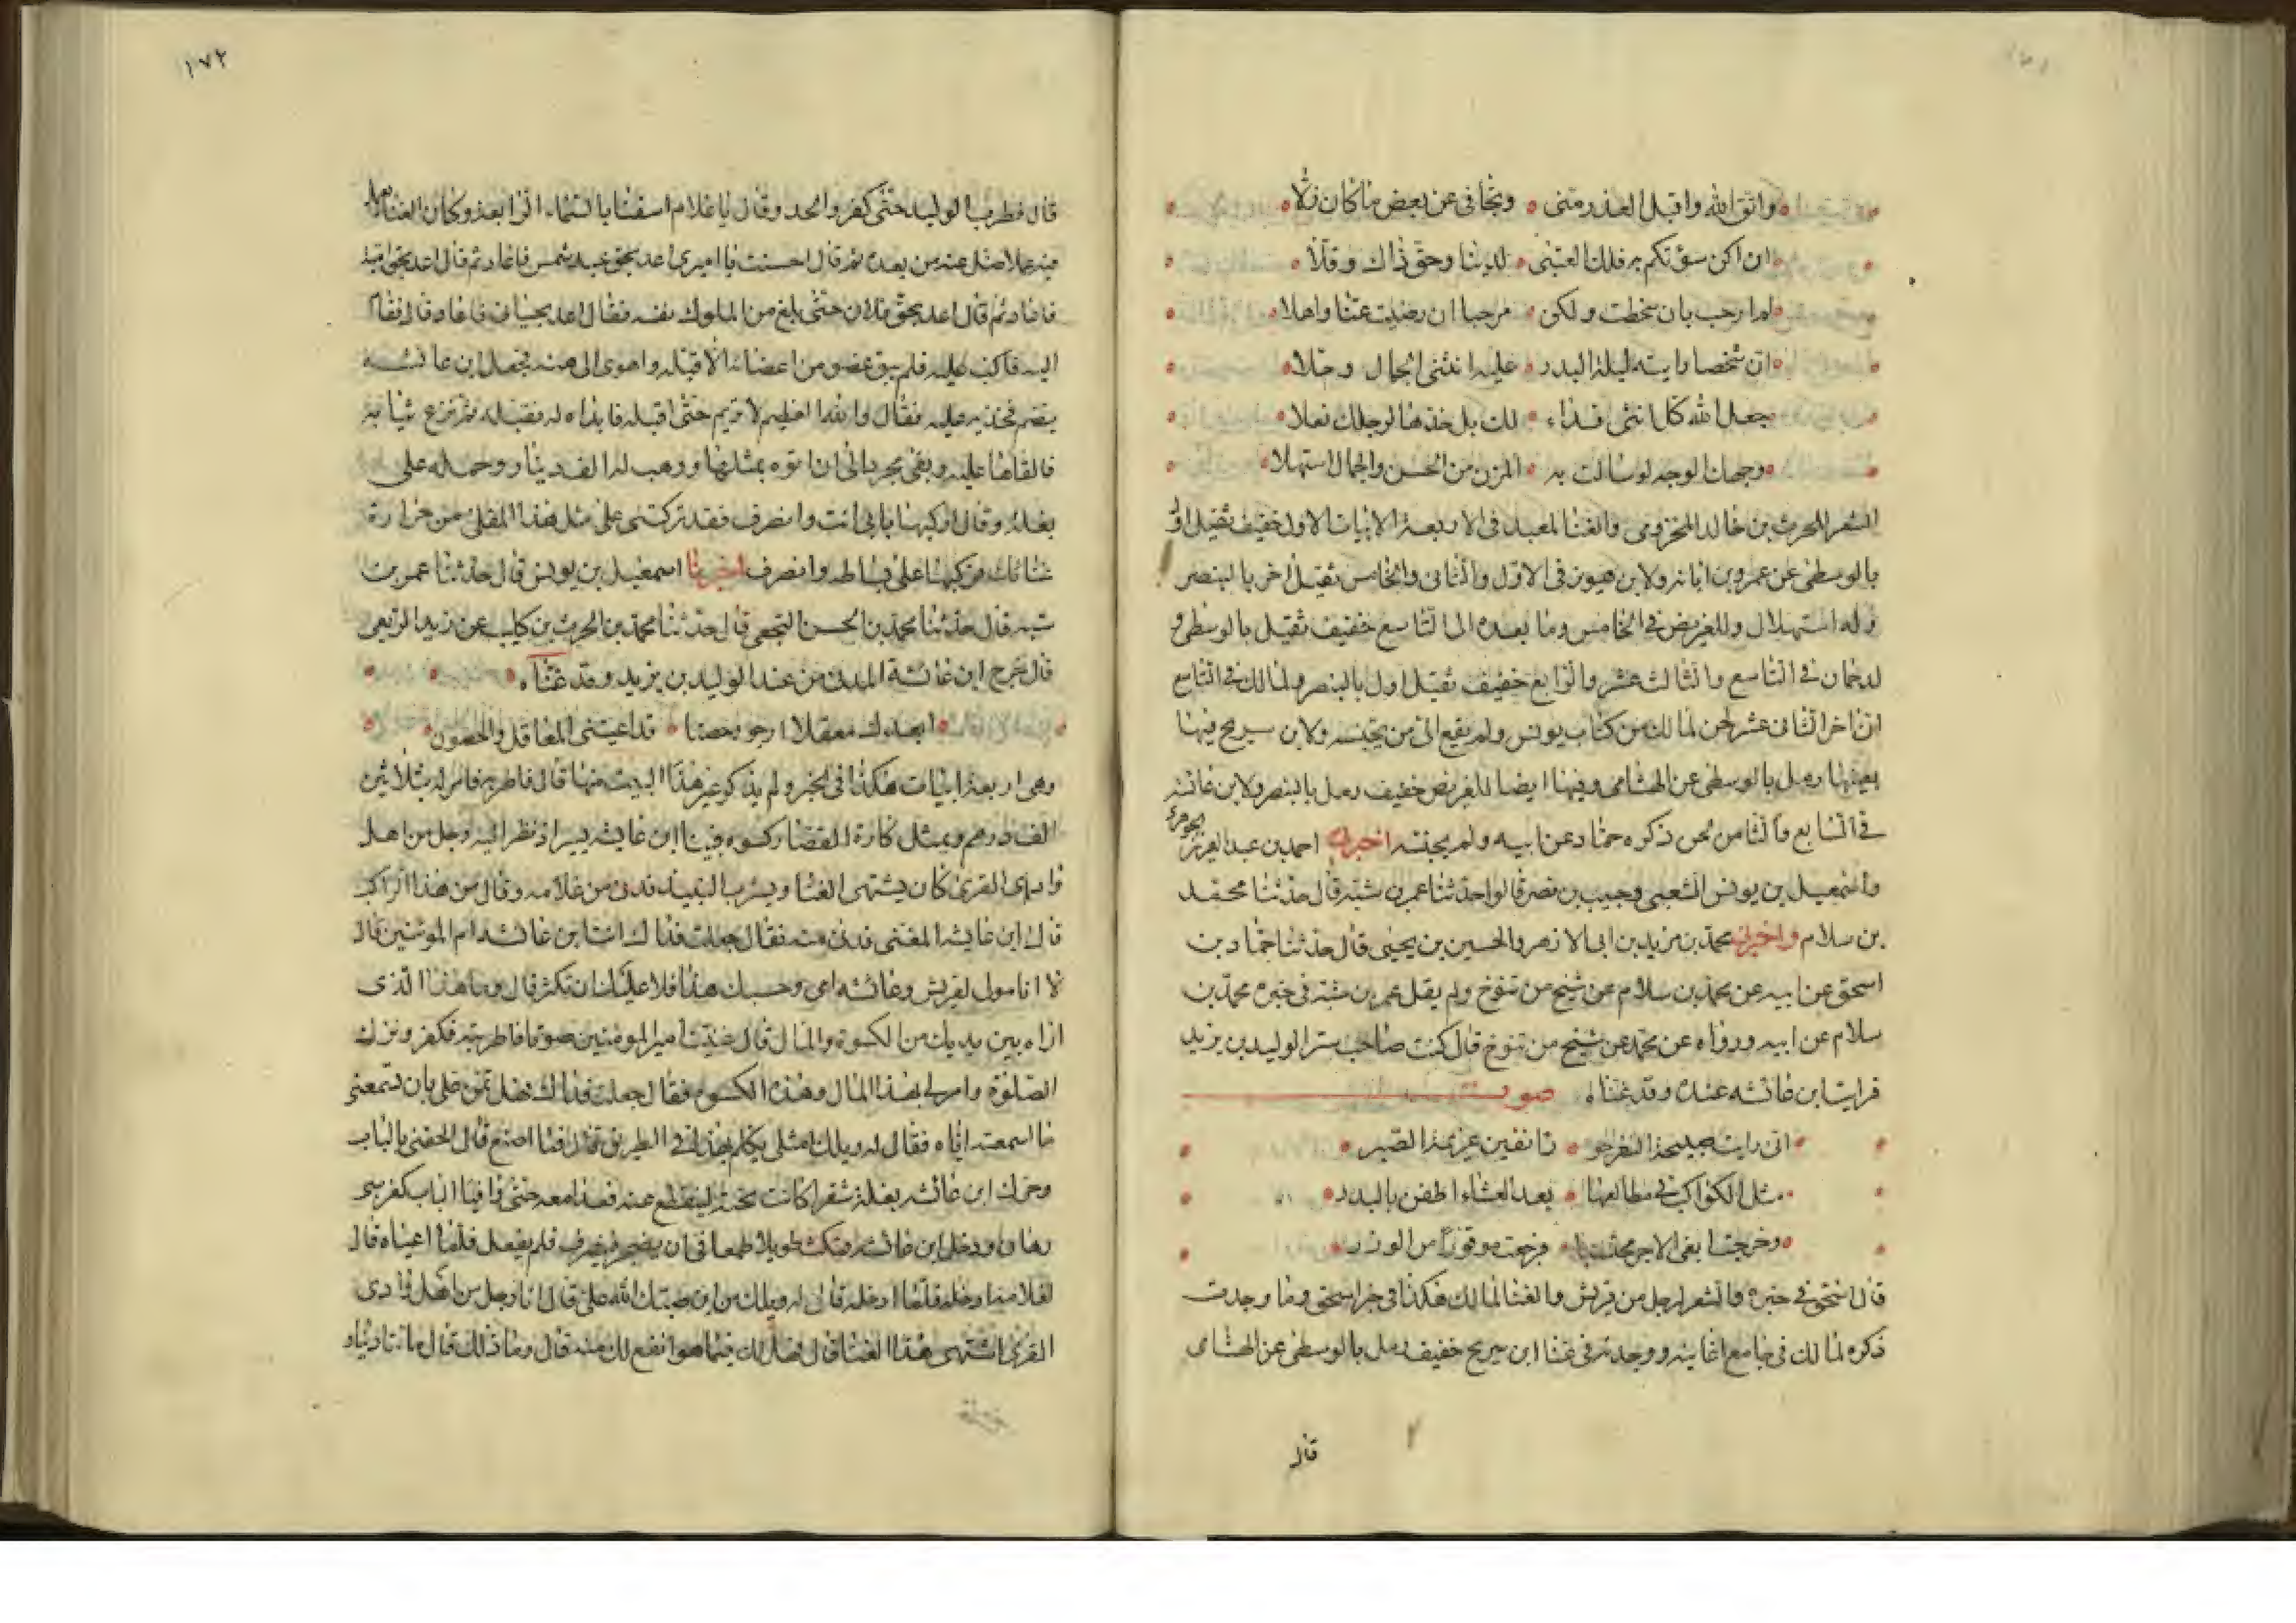 واتق الله واقبل العذر منى وتجافى عن بعض ما كان زلا
ان اكن سؤتكم به فلك العتبى لدينا وحق ذاك وقلا
لم ارحب بان سخطت ولكن مرحبا ان رضيت عنا واهلا
ان شخصا رايته ليلة البدر عليه انثنى الجمال وحلا
جعل الله كل انثى فداء لك بل خذها لرجلك نعلا
وجهك الوجه لو سالت به المزن من الحسن والجمال استهلا
الشعر للحرث بن خالد المخزومى والغنا لمعبد فى الاربعة الابيات الاول خفيف ثقيل اول
بالوسطى عن عمرو بن بانه ولابن هوبر فى الاول والثانى والخامس ثقيل اخر بالبنصر
وله استهلال وللغريض فى الخامس وما بعده الى التاسع خفيف ثقيل بالوسطى و
لدحمان فى التاسع والثالث عشر والرابع خفيف ثقيل اول بالبنصر ولمالك فى التاسع
الى اخر الثانى عشر لحن لمالك من كتاب يونس ولم يقع الى من يجنسه ولابن سريح فيها
بعينها رمل بالوسطى عن الهشامى وفيها ايضا للغريض خفيف رمل بالبنصر ولابن عائشه
فى السابع والثامن لحن ذكره حماد عن ابيه ولم يجنسه اخبرنى احمد بن عبد العزيز الجوهرى
واسمعيل بن يونس الشعبى وحبيب بن نصر قالوا حدثنا عمر بن شبه قال حدثنا محمد
بن سلام واخبرنى محمد بن مزيد بن ابى الازهر والحسين بن يحيى قال حدثنا حماد بن
اسحق عن ابيه عن محمد بن سلام عن شيخ من تنوخ ولم يقل عمر بن شبه فى خبره محمد بن
سلام عن ابيه ورواه عن محمد عن شيخ من تنوخ قال كنت صاحب ستر الوليد بن يزيد
فرايت ابن عائشه عنده وقد غناه صوت
انى رايت صبيحة النفر حورا نفين عزيمة الصبر
مثل الكواكب فى مطالعها بعد العشاء اطفن بالبدر
وخرجت ابغى الاجر محتسبا فرجعت موقورا من الوزر
قال اسحق فى خبره والشعر لرجل من قريش والغنا لمالك هكذا فى خبر اسحق وما وجدت
ذكره لمالك فى جامع اغانيه ووجدته فى غنا ابن سريح خفيف رمل بالوسطى عن الهشامى
قال
١٧٢
قال فطرب الوليد حتى كفر والحد وقال يا غلام اسقنا بالسماء الرابعة وكان الغنا يعمل
فيه عملا ضل عنه من بعده ثم قال احسنت يا اميرى اعد بحق عبد شمس فاعاد ثم قال اعد بحق امية
فاعاد ثم قال اعد بحق فلان حتى بلغ من الملوك نفسه فقال اعد بحياتى فاعاد قال فقام
اليه فاكب عليه فلم يبق عضو من اعضائه الا قبله واهوى الى هنه فجعل ابن عائشه
يضم فخذيه عليه فقال والله العظيم لا تريم حتى اقبله فابداه له فقبله ثم نزع ثيابه
فالقاها عليه وبقى مجردا الى ان اتوه بمثلها ووهب له الف دينار وحمله على
بغلة وقال اركبها بابى انت وانصرف فقد تركتنى على مثل هذا المقلى من حرارة
غنائك فركبها على بساطه وانصرف اخبرنا اسمعيل بن يونس قال حدثنا عمر بن
شبه قال حدثنا محمد بن الحسن النجعى قال حدثنا محمد بن الحرث بن كليب عن زيد الربعى
قال خرج ابن عائشة المدنى من عند الوليد بن يزيد وقد غناه
ابعدك معقلا ارجو وحصنا قد اعيتنى المعاقل والحصون
وهى اربعة ابيات هكذا فى الخبر ولم يذكر غير هذا البيت منها قال فاطربه فامر له بثلاثين
الف درهم وبمثل كارة القصار كسوه فبينا ابن عايشه يسير اذ نظر اليه رجل من اهل
وادى القرى كان يشتهى الغنا ويشرب النبيذ فدنى من غلامه وقال من هذا الراكب
قال ابن عايشه المغنى فدنى منه فقال جعلت فداك انت ابن عائشه ام المومنين قال
لا انا مولى لقريش وعائشه امى وحسبك هذا فلا عليك ان تكثر قال وما هذا الذى
اراه بين يديك من الكسوة والمال قال غنيت امير المومنين صوتا فاطربته فكفر وترك
الصلوة وامر لى بهذا المال وهذه الكسوه فقال جعلت فداك فهل تمن على بان تسمعنى
ما اسمعته اياه فقال له ويلك امثلى يكلم بهذا فى الطريق قال فما اصنع قال الحقنى بالباب
وحرك ابن عائشه بغلة شقرا كانت تحته لينقطع عنه فعدا معه حتى وافيا الباب كفرسى
رهان ودخل ابن عائشه فمكث طويلا طمعا فى ان يضجر فينصرف فلم يفعل فلما اعياه قال
لغلامه ادخله فلما ادخله قال له ويلك من اين صبك الله على قال انا رجل من اهل وادى
القرى اشتهى هذا الغنا قال فهل لك فيما هو انفع لك منه قال وما ذلك قال مائتا دينار